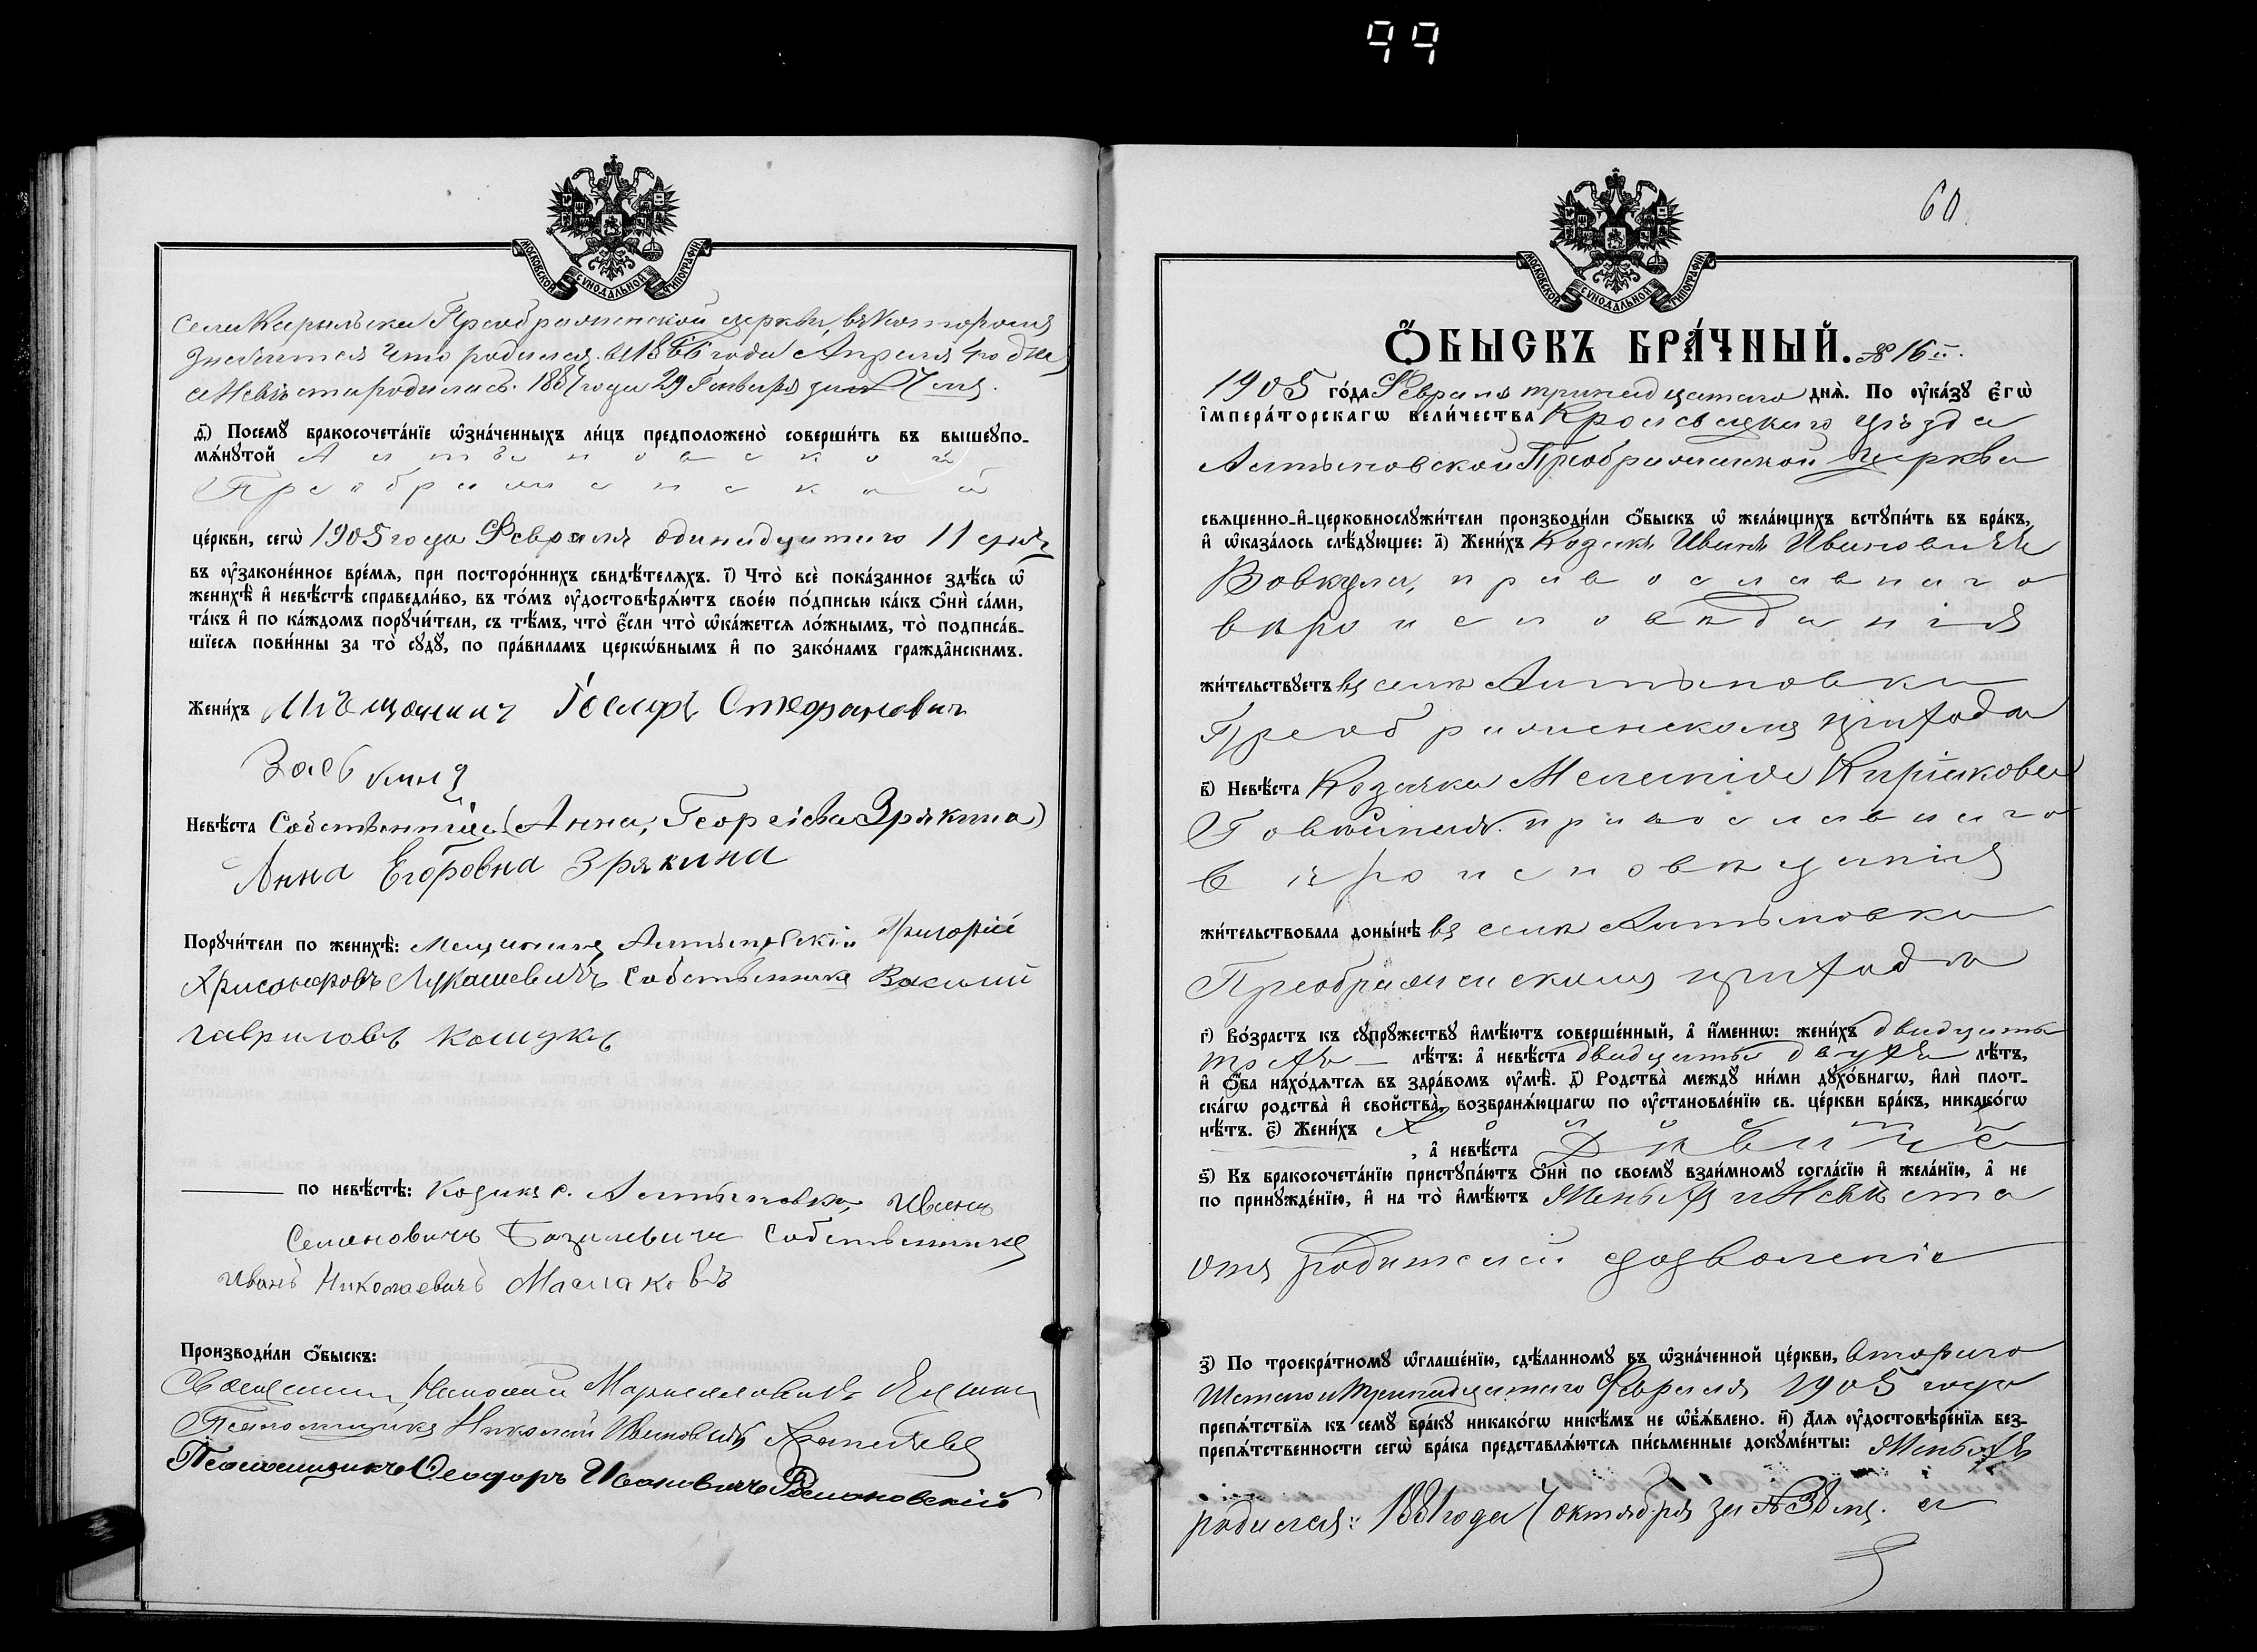 99
МОСКОВСКОЙ СѴНОДАЛЬНОЙ ТИПОГРАФІИ
села Преображенской церкви, въ которомъ
значится что родился въ 1866 году Апрѣля 4го дня
а Невѣста родилась 1881 года 29 Генваря за
д҃) Посемꙋ̀ бракосочета́нїе ѡ҆зна́ченныхъ ли́цъ предположено̀ соверши́ть въ вышеꙋпо-
мѧ́нꙋтой Алтыновской
Преображенской
це́ркви, сегѡ̀ 1905 года Февраля одинадцатаго 11 дня
въ ᲂу҆законе́нное вре́мѧ, при посторо́ннихъ свидѣ́телѧхъ. і҃) Что̀ всѐ пока́занное здѣ́сь ѡ҆
женихѣ̀ и҆ невѣ́стѣ справедли́во, въ то́мъ ᲂу҆достовѣрѧ́ютъ свое́ю по́дписью ка́къ ѻ҆нѝ са́ми,
та́къ и҆ по ка́ждомъ порꙋчи́тели, съ тѣ́мъ, что̀ є҆́сли что̀ ѡ҆ка́жетсѧ ло́жнымъ, то̀ подписа́в-
шїесѧ пови́нны за то̀ сꙋдꙋ̀, по пра́виламъ церко́внымъ и҆ по зако́намъ гражда́нскимъ.
Жени́хъ Мѣщанинъ Іосифъ Стефановичъ
Невѣ́ста Собственница (Анна, Георгіева Зрякина)
Анна Егоровна Зрякина
Порꙋчи́тели по женихѣ̀: Мещанинъ Алтыновскій Григорій
Хрисанфовъ Лукашевичъ Собственникъ Василий
Гавриловъ Кошукъ
по невѣ́стѣ: Козакъ с. Алтыновки, Иванъ
Семеновичъ Базилевичъ Собственникъ
Иванъ Николаевичъ Маслаковъ
Производи́ли ѻ҆́быскъ:
Священникъ Николай
Псаломщикъ Николай Ивановичъ
Псаломщикъ Ѳеодоръ Ивановичъ Романовскій
60.
МОСКОВСКОЙ СѴНОДАЛЬНОЙ ТИПОГРАФІИ
Ѻ҆́БЫСКЪ БРА́ЧНЫЙ. № 16й.
1905 го́да Февраля тринадцатаго днѧ̀. По ᲂу҆ка́зꙋ є҆гѡ̀
і҆мпера́торскагѡ вели́чества Кролевецкаго уѣзда
Алтыновской Преображенской Церкви
свѧщенно-и҆-церковнослꙋжи́тели производи́ли ѻ҆́быскъ ѡ҆ жела́ющихъ встꙋпи́ть въ бра́къ,
и҆ ѡ҆каза́лось слѣ́дꙋющее: а҃) Жени́хъ Козакъ Иванъ Ивановичъ
Вовкула, православнаго
вѣроисповѣданія
жи́тельствꙋетъ въ селѣ Алтыновкѣ
Преображенскомъ приходѣ
в҃) Невѣ́ста Козачка Меланія Киріакова
православнаго
вѣроисповѣданія
жи́тельствовала доны́нѣ въ селѣ Алтыновкѣ
Преображенскомъ приходѣ
г҃) Во́зрастъ къ сꙋпрꙋ́жествꙋ и҆мѣ́ютъ соверше́нный, а҆ и҆́меннѡ: жени́хъ двадцать
трехъ лѣ́тъ: а҆ невѣ́ста двадцать двухъ лѣ́тъ,
и҆ ѻ҆́ба нахо́дѧтсѧ въ здра́вомъ ᲂу҆мѣ̀. д҃) Родства̀ междꙋ̀ ни́ми дꙋхо́внагѡ, и҆лѝ плот-
ска́гѡ родства̀ и҆ сво́йства, возбранѧ́ющагѡ по ᲂу҆становле́нїю св. це́ркви бра́къ, никако́гѡ
нѣ́тъ. є҃) Жени́хъ Холостъ
, а҆ невѣ́ста Дѣвица
ѕ҃) Къ бракосочета́нїю пристꙋпа́ютъ ѻ҆нѝ по своемꙋ̀ взаи́мномꙋ согла́сїю и҆ жела́нїю, а҆ не
по принꙋжде́нїю, и҆ на то̀ и҆мѣ́ютъ Женихъ и Невѣста
отъ родителей дозволеніе
з҃) По троекра́тномꙋ ѡ҆глаше́нїю, сдѣ́ланномꙋ въ ѡ҆зна́ченной це́ркви, втораго
шестаго и тринадцатаго Февраля 1905 года
препѧ́тствїѧ къ семꙋ̀ бра́кꙋ никако́гѡ никѣ́мъ не ѡ҆б̾ѧ́влено. и҃) Длѧ ᲂу҆достовѣре́нїѧ без-
препѧ́тственности сегѡ̀ бра́ка представлѧ́ютсѧ пи́сьменные докꙋме́нты: Женихъ
родился: 1881 года 7 октября за № а